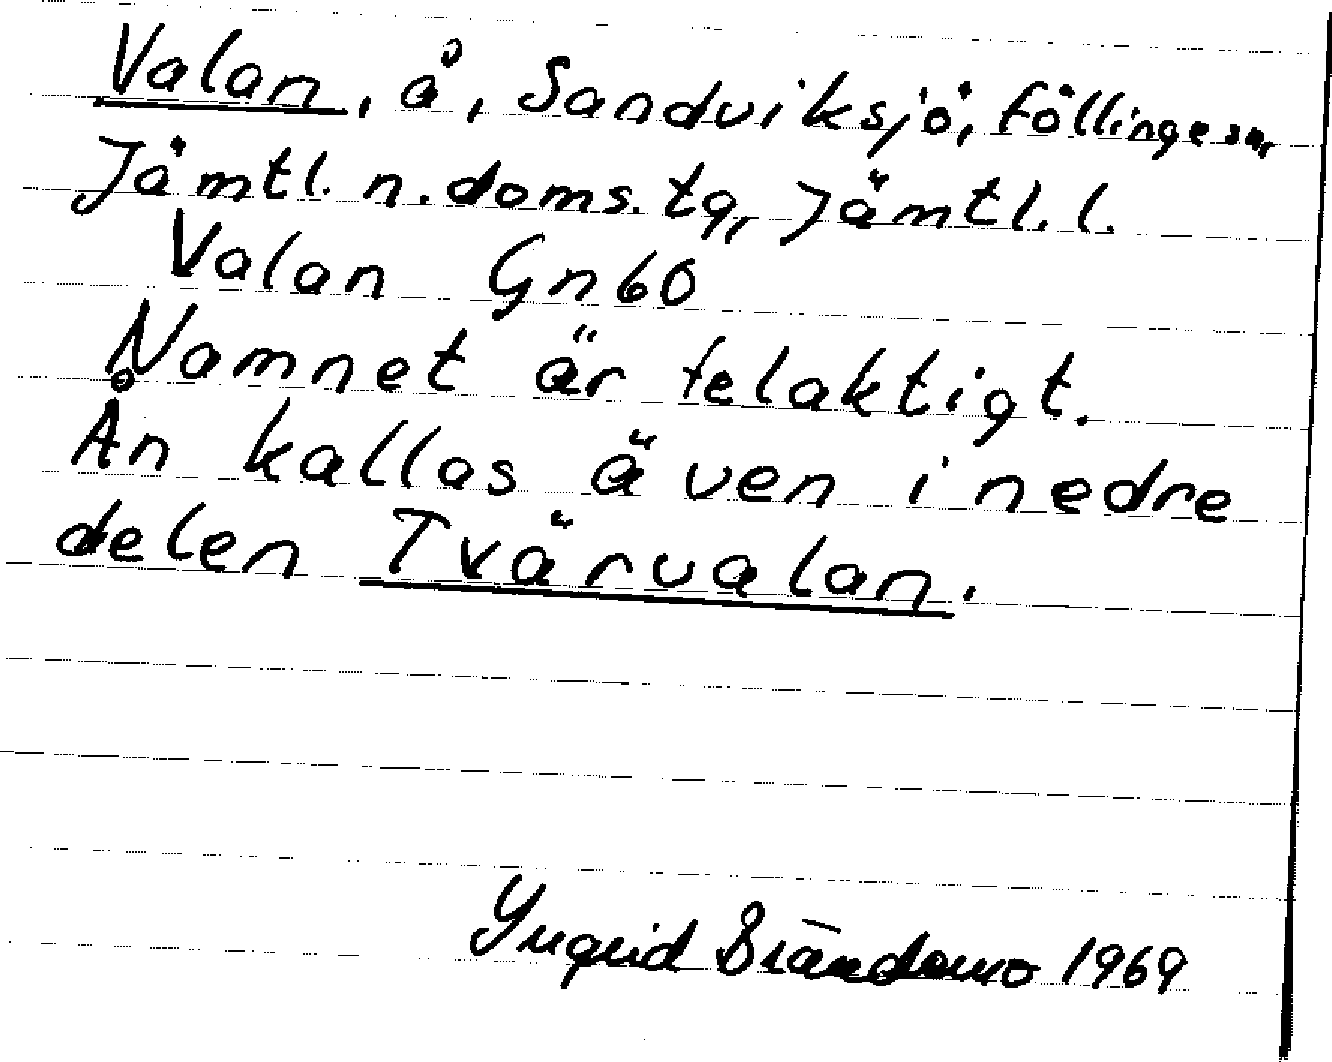 Valan, å, Sandviksjö, Föllinge sn,
Jämtl. n. doms. tg, Jämtl. l.
Valan Gn 60
Namnet är felaktigt.
Ån kallas även i nedre
delen Tvärvalan.
Ingrid Brändomo 1969